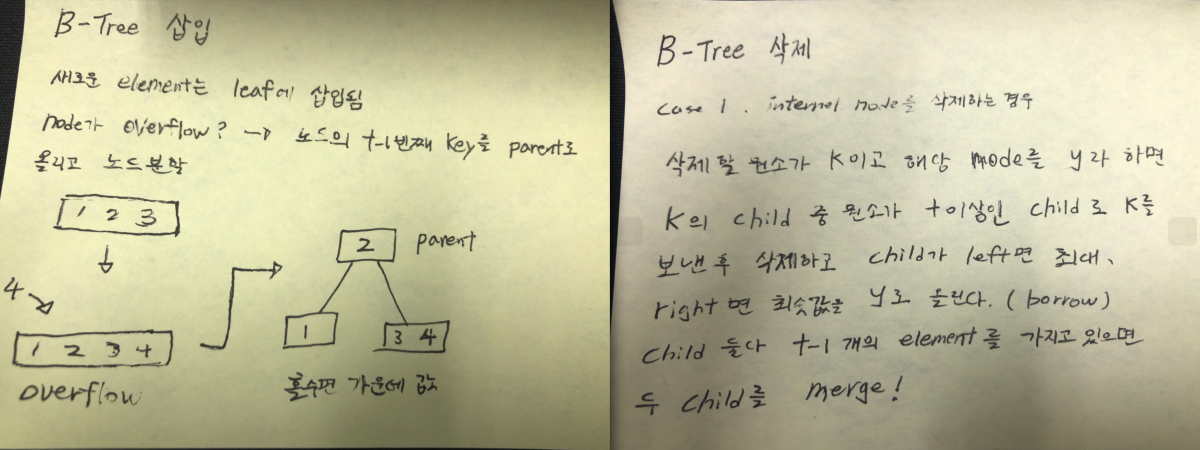 B-Tree 삽입
새로운 element는 leaf에 삽입됨
node가 overflow? → 노드의 t-1번째 key를 parent로
올리고 노드분할
1 2 3
4
1 2 3 4
overflow
2 parent
1
3 4
홀수면 가운데 값
B-Tree 삭제
Case 1. internel node를 삭제하는 경우
삭제할 원소가 K이고 해당 node를 y라 하면
K의 child 중 원소가 t이상인 child로 K를
보낸후 삭제하고 child가 left면 최대,
right면 최솟값을 y로 올린다. (borrow)
child 둘다 t-1 개의 element를 가지고 있으면
두 child를 merge!